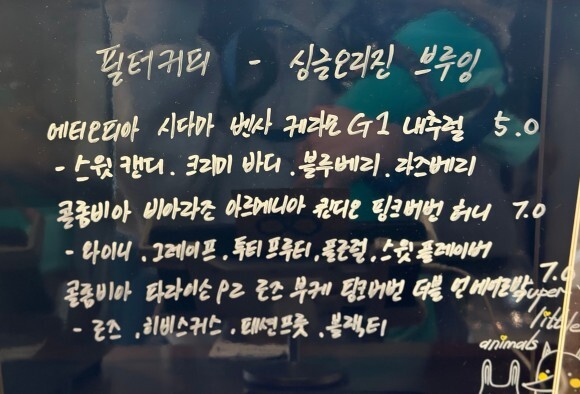 필터커피 - 싱글오리진 브루잉
에티오피아 시다마 벤사 케라모 G1 내추럴 5.0
- 스윗 캔디. 크리미 바디. 블루베리. 라즈베리
콜롬비아 비아라존 아르메니아 퀸디오 핑크버번 허니 7.0
- 와이니. 그레이프. 투티프루티. 플로럴. 스윗 플레이버
콜롬비아 파라이소 P2 로즈 부케 핑크버번 더블 언에어로빅 7.0
- 로즈. 히비스커스. 패션프룻. 블랙티
super
little
animals